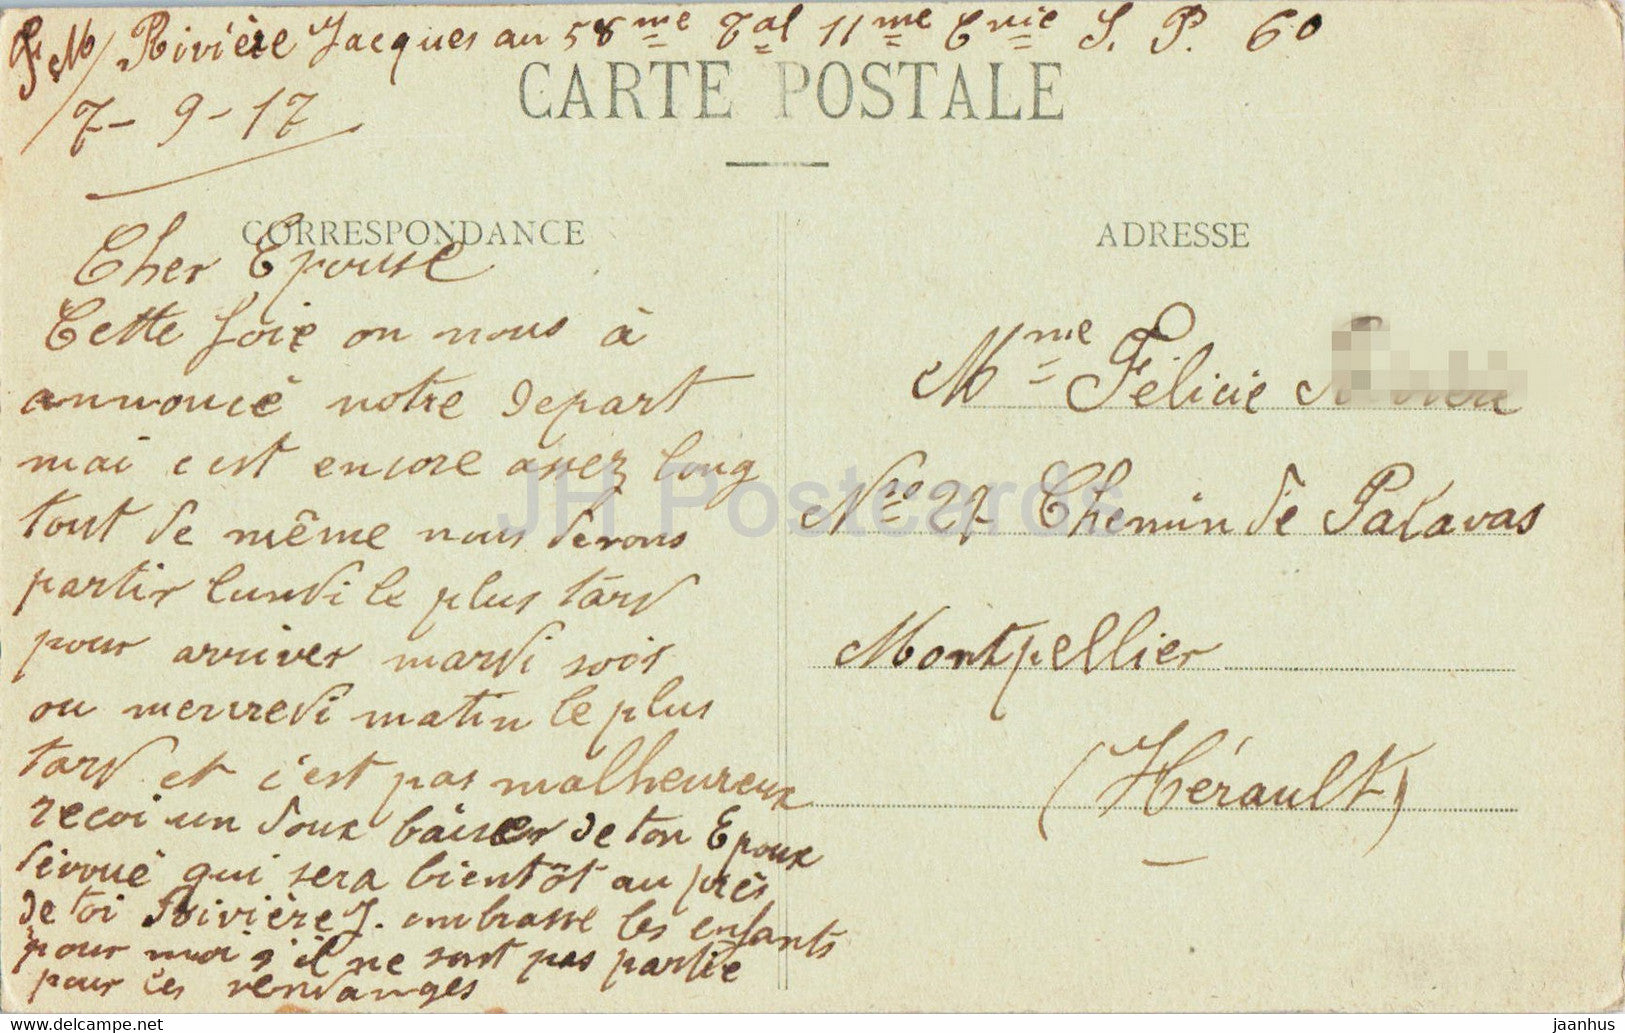 F. M/ Rivière Jacques au 58me Tal 11me Cnie S. P. 60
7-9-17
CARTE POSTALE
CORRESPONDANCE
Cher Epouse
Cette foie on nous à
annoncé notre depart
mai c est encore assez long
tout de même nous devons
partir lundi le plus tard
pour arriver mardi soir
ou mercredi matin le plus
tard et c'est pas malheureux
recoi un doux baiser de ton Epoux
dévoué qui sera bientôt au près
de toi Rivière J. embrasse les enfants
pour moi s'il ne sont pas partie
pour les vendanges
ADRESSE
Mme Félicie
Nro 27 Chemin de Palavas
Montpellier
(Hérault)
JH Postcards
jaanhus @ delcampe.net